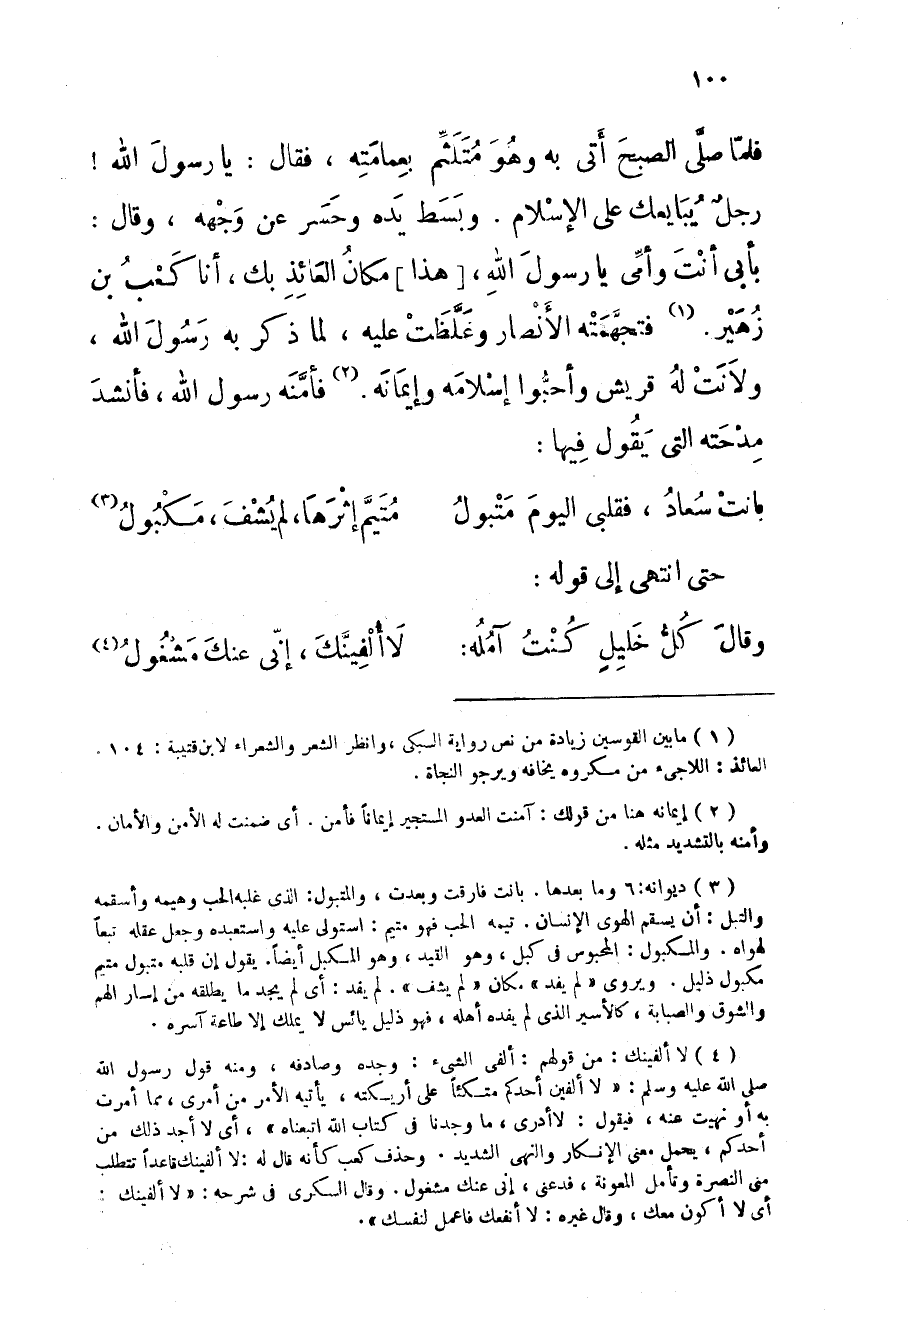 ١٠٠
فلمّا صلَّى الصبحَ أَتى به وهُوَ مُتَلَثِّم بِعِمامَتِه ، فقال : يا رسولَ الله !
رجلٌ يُبَايعك على الإِسْلام . وبَسَط يَده وحَسَر عن وَجْهه ، وقال :
بأبى أنْتَ وأمِّى يا رسولَ اللهِ ، [ هذا ] مَكانُ العَائِذِ بك ، أنا كَعْبُ بن
زُهَيْر . (١) فتجهَّمَتْه الأَنْصار وغَلَّظَتْ عليه ، لما ذكر به رَسُولَ الله ،
ولاَنَتْ لهُ قريش وأحبُّوا إسْلامَه وإيمَانَه . (٢) فأمَّنَه رسول الله ، فأنشدَ
مِدْحَته التى يَقُول فِيها :
بانتْ سُعادُ ، فقلبى اليومَ مَتْبولُ مُتَيَّم إثْرَهَا ، لم يُشْفَ ، مَكْبُولُ (٣)
حتى انتهى إلى قوله :
وقالَ كُلُّ خَلِيلٍ كُنْتُ آمُلُه : لَا أُلْفِيَنَّكَ ، إنّى عنكَ مَشْغُولُ (٤)
( ١ ) مابين القوسين زيادة من نص رواية السبكى ، وانظر الشعر والشعراء لابن قتيبة : ١٠٤ .
العائذ : اللاجىء من مكروه يخافه ويرجو النجاة .
( ٢ ) إيمانه هنا من قولك : آمنت العدو المستجير إيماناً فأمن . أى ضمنت له الأمن والأمان .
وأمنه بالتشديد مثله .
( ٣ ) ديوانه : ٦ وما بعدها . بانت فارقت وبعدت ، والمتبول : الذى غلبه الحب وهيمه وأسقمه
والتبل : أن يسقم الهوى الإنسان . تيمه الحب فهو متيم : استولى عليه واستعبده وجعل عقله تبعاً
لهواه . والمكبول : المحبوس فى كبل ، وهو القيد ، وهو المكبل أيضاً . يقول إن قلبه متبول متيم
مكبول ذليل . ويروى « لم يفد » مكان « لم يشف » . لم يفد : أى لم يجد ما يطلقه من إسار الهم
والشوق والصبابة ، كالأسير الذى لم يفده أهله ، فهو ذليل يائس لا يملك إلا طاعة آسره .
( ٤ ) لا ألفينك : من قولهم : ألفى الشىء : وجده وصادفه ، ومنه قول رسول الله
صلى الله عليه وسلم : « لا ألفين أحدكم متكئاً على أريكته ، يأتيه الأمر من أمرى ، مما أمرت
به أو نهيت عنه ، فيقول : لا أدرى ، ما وجدنا فى كتاب الله اتبعناه » ، أى لا أجد ذلك من
أحدكم ، يحمل معنى الإنكار والنهى الشديد . وحذف كعب كأنه قال له : لا ألفينك قاعداً تتطلب
منى النصرة وتأمل المعونة ، فدعنى ، إنى عنك مشغول . وقال السكرى فى شرحه : « لا ألفينك :
أى لا أكون معك ، وقال غيره : لا أنفعك فاعمل لنفسك » .